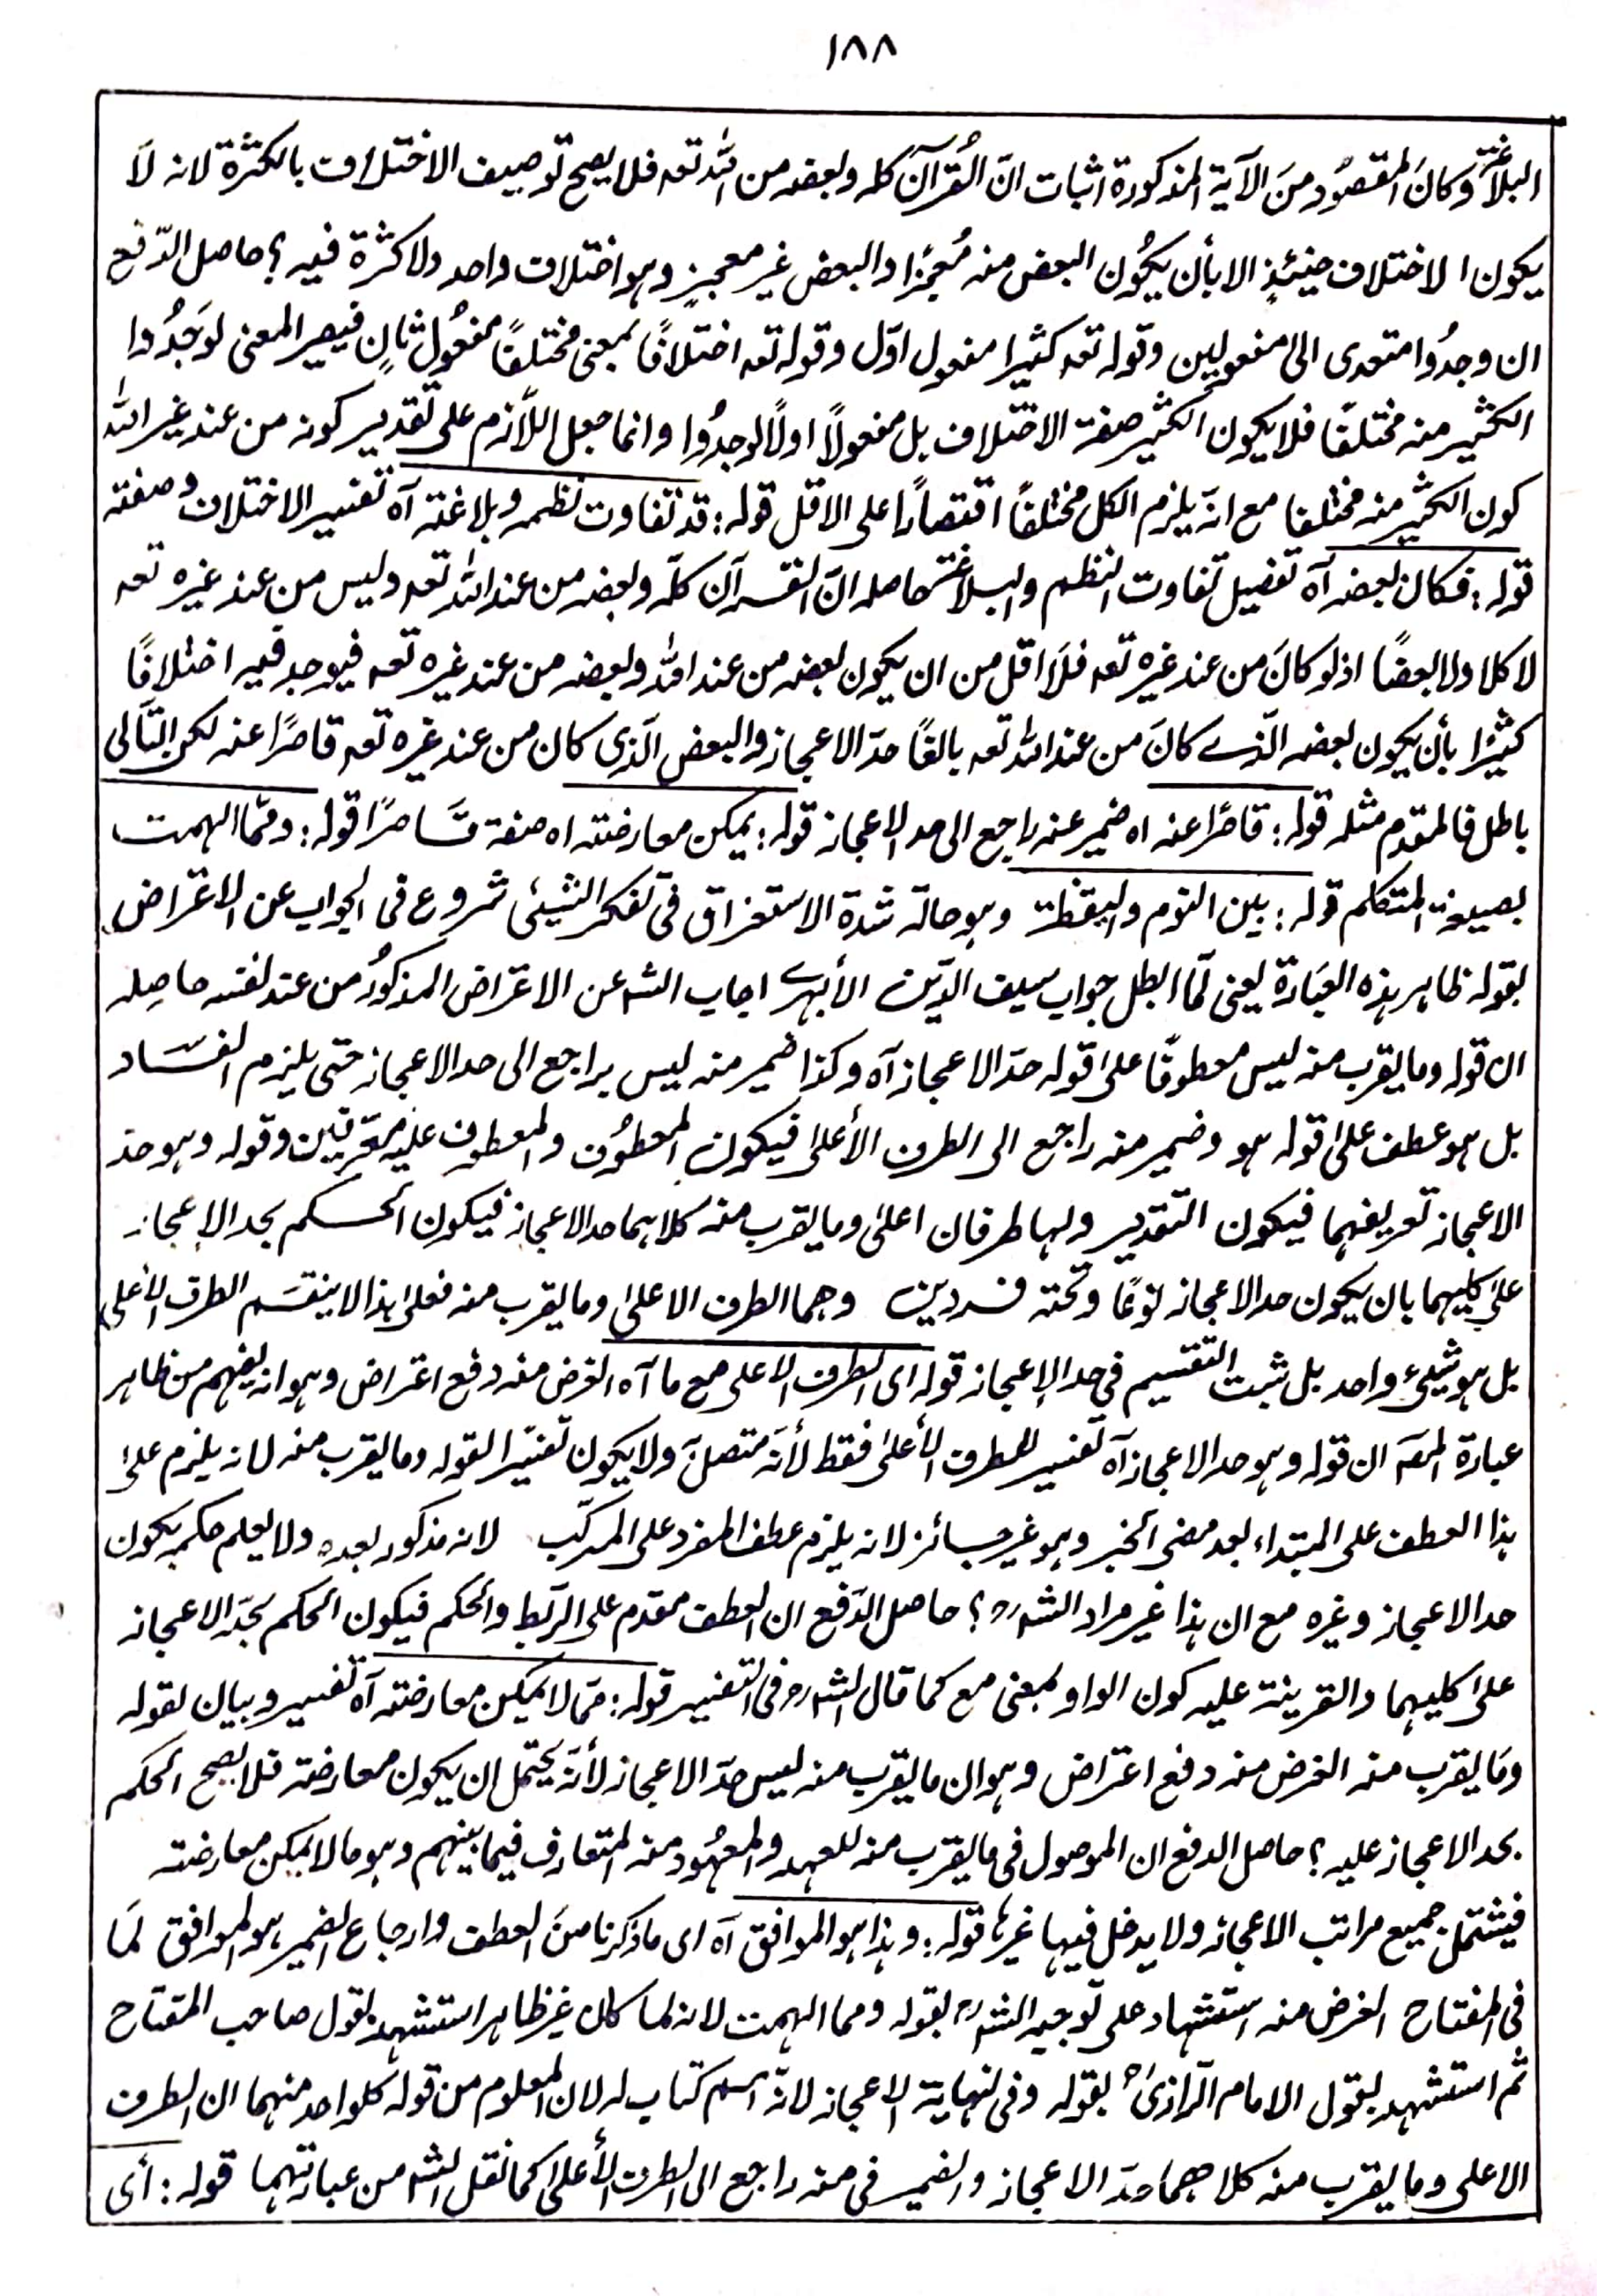 ١٨٨
البلاغة وكانَ المقصُود منَ الآية المذكورة اثبات انّ القُرآنَ كله وبعضه من الله تعہ فلا يصح توصيف الاختلاف بالكثرة لانه لَا
يكون الاختلاف حينئذٍ الا بأن يكُون البعض منه مُعجزًا والبعض غير معجزٍ وهو اختلاف واحد ولا كثرة فيه ؟ حاصل الدّفع
ان وجدُوا متعدى الى مفعولين وقوله تعہ كثيرا مفعول اوّل وقوله تعہ اختلافًا بمعنى مختلفًا مفعُول ثانٍ فيصير المعنى لوَجَدُوا
الكثير منه مختلفًا فلا يكون الكثير صفة الاختلاف بل مفعولاً اولاً لوجدُوا وانما جعل اللاّزم على تقدير كونه من عند غير الله
كون الكثير منه مختلفا مع انه يلزم الكل مختلفًا اقتصارًا على الاقل قوله : قد تفاوت نظمه وبلاغته آه تفسير الاختلاف وصفته
قوله : فكان بعضه آه تفصيل تفاوت النظم والبلاغة حاصله انّ القرآن كلّه وبعضه من عند الله تعہ وليس من عند غيره تعہ
لا كلا ولا بعضًا اذ لو كانَ من عند غيره تعہ فلَا اقل من ان يكون بعضه من عند الله وبعضه من عند غيره تعہ فيوجد فيه اختلافًا
كثيرًا بأن يكون بعضه الّذى كانَ من عند الله تعہ بالغًا حدّ الاعجاز والبعض الّذى كان من عند غيره تعہ قاصرًا عنه لكن التّالى
باطل فالمقدم مثله قوله : قاصرًا عنه اه ضمير عنه راجع الى حد الاعجاز قوله : يمكن معارضته اه صفة قَاصرًا قوله : وممّا الهمت
بصيغة المتكلم قوله : بين النوم واليقظة وهو حالة شدة الاستغراق فى تفكر الشيئى شروع فى الجواب عن الاعتراض
بقوله ظاهر هذه العبَارة يعنى لمّا ابطل جواب سيف الدّين الأبهرى اجاب الشہ عن الاعتراض المذكُور من عند نفسه حاصِله
ان قوله وما يقرب منه ليس معطوفًا على قوله حدّ الاعجاز آه وكذا ضمير منه ليس براجع الى حد الاعجاز حتى يلزم الفسَاد
بل هو عطف على قوله هو وضمير منه راجع الى الطرف الأعلى فيكون المعطُوف والمعطوف عليه معرّفين وقوله وهو حد
الاعجاز تعريفهما فيكون التقدير ولها طرفان اعلى وما يقرب منه كلاهما حد الاعجاز فيكون الحكم بحد الاعجاز
على كليهما بان يكون حد الاعجاز نوعًا وتحته فردين وهما الطرف الاعلى وما يقرب منه فعلى هذا لا ينقسَم الطرف الأعلى
بل هو شيئ واحد بل ثبت التقسيم فى حد الاعجاز قوله اى الطرف الاعلى مع ما آه الغرض منه دفع اعتراض وهو انه يفهم من ظاهر
عبارة المصہ ان قوله وهو حد الاعجاز آه تفسير للطرف الأعلى فقط لأنّه متصل ولا يكون تفسيرًا لقوله وما يقرب منه لانه يلزم على
هذا العطف على المبتداء بعد مضى الخبر وهو غير جائز لانه يلزم عطف المفرد على المركّب لانه مذكور بعده ولا يعلم حكمه يكون
حد الاعجاز وغيره مع ان هذا غير مراد الشہ رح ؟ حاصل الدّفع ان العطف مقدم على الرّبط والحكم فيكون الحكم بحدّ الاعجاز
على كليهما والقرينة عليه كون الواو بمعنى مع كما قال الشہ رح فى التفسير قوله : ممّا لا يمكن معارضته آه تفسير وبيان لقوله
ومَا يقرب منه الغرض منه دفع اعتراض وهو ان ما يقرب منه ليس حدّ الاعجاز لأنّه يحتمل ان يكون معارضته فلا يصح الحكم
بحد الاعجاز عليه ؟ حاصل الدفع ان الموصول فى ما يقرب منه للعهد والمعهُود منه المتعارف فيما بينهم وهو ما لا يمكن معارضته
فيشتمل جميع مراتب الاعجاز ولا يدخل فيها غيرها قوله : وهذا هو الموافق آه اى ما ذكرنا منَ العطف وارجاع الضمير هو الموافق لمَا
فى المفتاح الغرض منه استشهاد على توجيه الشہ رح بقوله ومما الهمت لانه لما كان غير ظاهر استشهد بقول صاحب المفتاح
ثم استشهد بقول الامام الرّازىؒ بقوله وفى نهاية الاعجاز لانّه اسم كتاب له لان المعلوم من قوله كلواحد منهما ان الطرف
الاعلى وما يقرب منه كلاهما حدّ الاعجاز والضمير فى منه راجع الى الطرف الأعلى كما نقل الشہ من عبارتهما قوله : أى